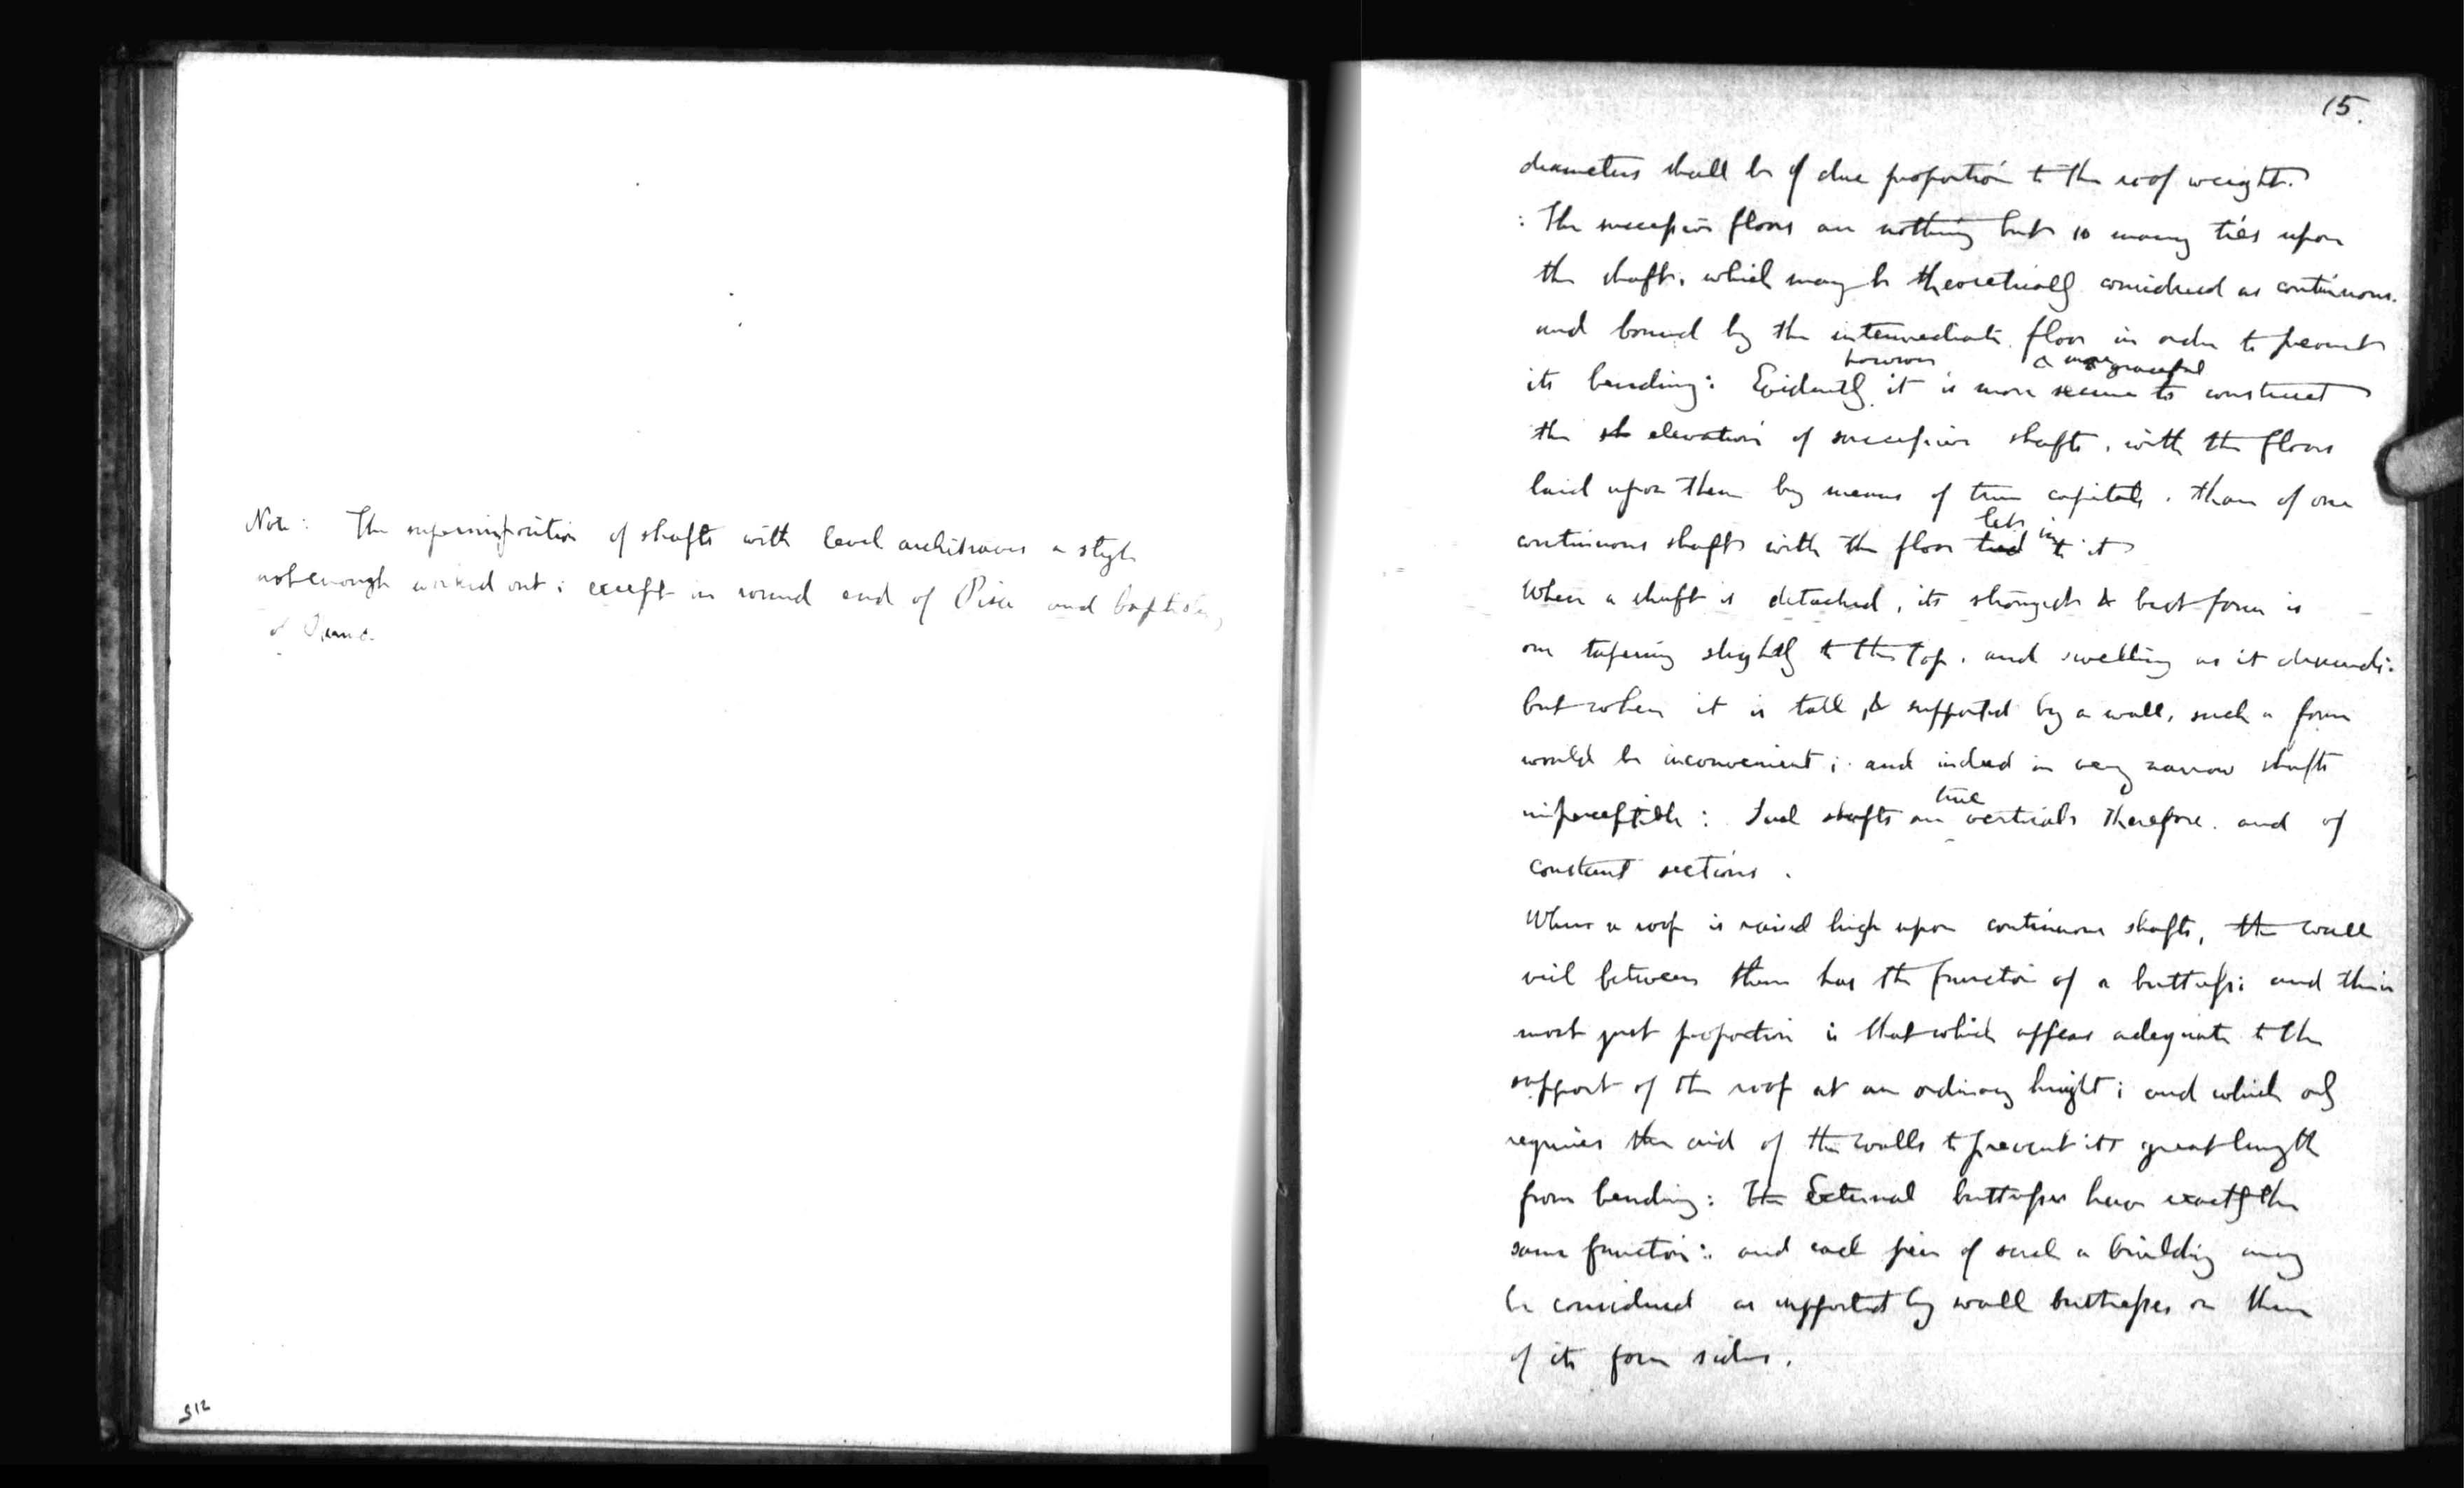 Note: The superimposition of shafts with level architraves a style
not enough worked out; except in round end of Pisa and baptistery
of
512
15.
diameters shall be of due proportion to the roof weight.
: The successive floors are nothing but so many ties upon
the shaft, which may be theoretically considered as continuous.
and bound by the intermediate floor in order to prevent
however a more graceful
its bending: Evidently it is more secure to construct
the sh elevation of successive shafts, with the floors
laid upon them by means of true capitals, than of one
let in
continuous shaft with the floor tied to it
When a shaft is detached, its strongest & best form is
one tapering slightly to the top, and swelling as it descends:
but when it is tall, & supported by a wall, such a form
would be inconvenient; and indeed in very narrow shafts
true
imperceptible: Such shafts are verticals therefore. and of
constant sections.
When a roof is raised high upon continuous shafts, the wall
veil between them has the function of a buttress: and their
most just proportion is that which appears adequate to the
support of the roof at an ordinary height; and which only
requires the aid of the walls to prevent its great length
from bending: The External buttresses have exactly the
same function: and each pier of such a building may
be considered as supported by wall buttresses on three
of its four sides.